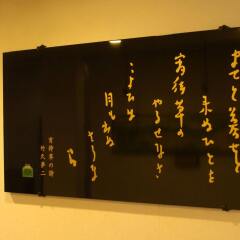 まてど暮せど
来ぬひとを
宵待草の
やるせなさ
こよひは
月も出ぬ
さうな
宵待草の詩
竹久夢二